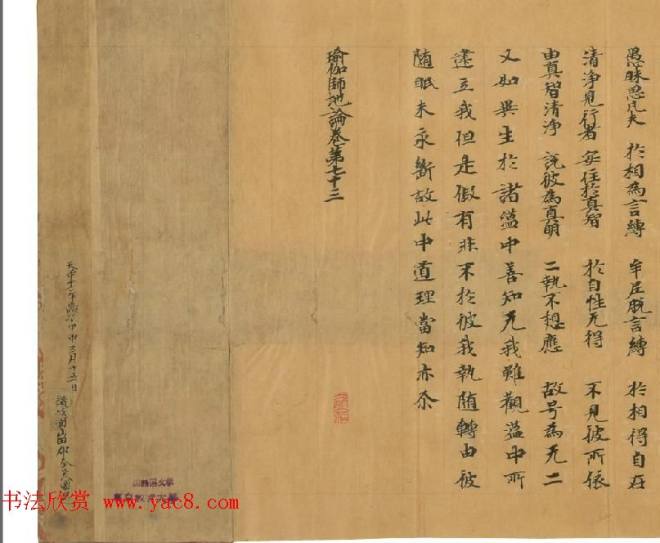 愚昧愚凡夫 於相為言縛 牟尼脫言縛 於相得自在
清淨見行者 安住於真智 於自性无得 不見彼所依
由真智清淨 說彼為真明 二執不想應 故号為无二
又如異生於諸蕴中善知无我雖觀蕴中所
建立我但是假有非不於彼我執随轉由彼
随眠未永斷故此中道理當知亦尒
瑜伽師地論卷第七十三
書法欣赏 www.yac8.com